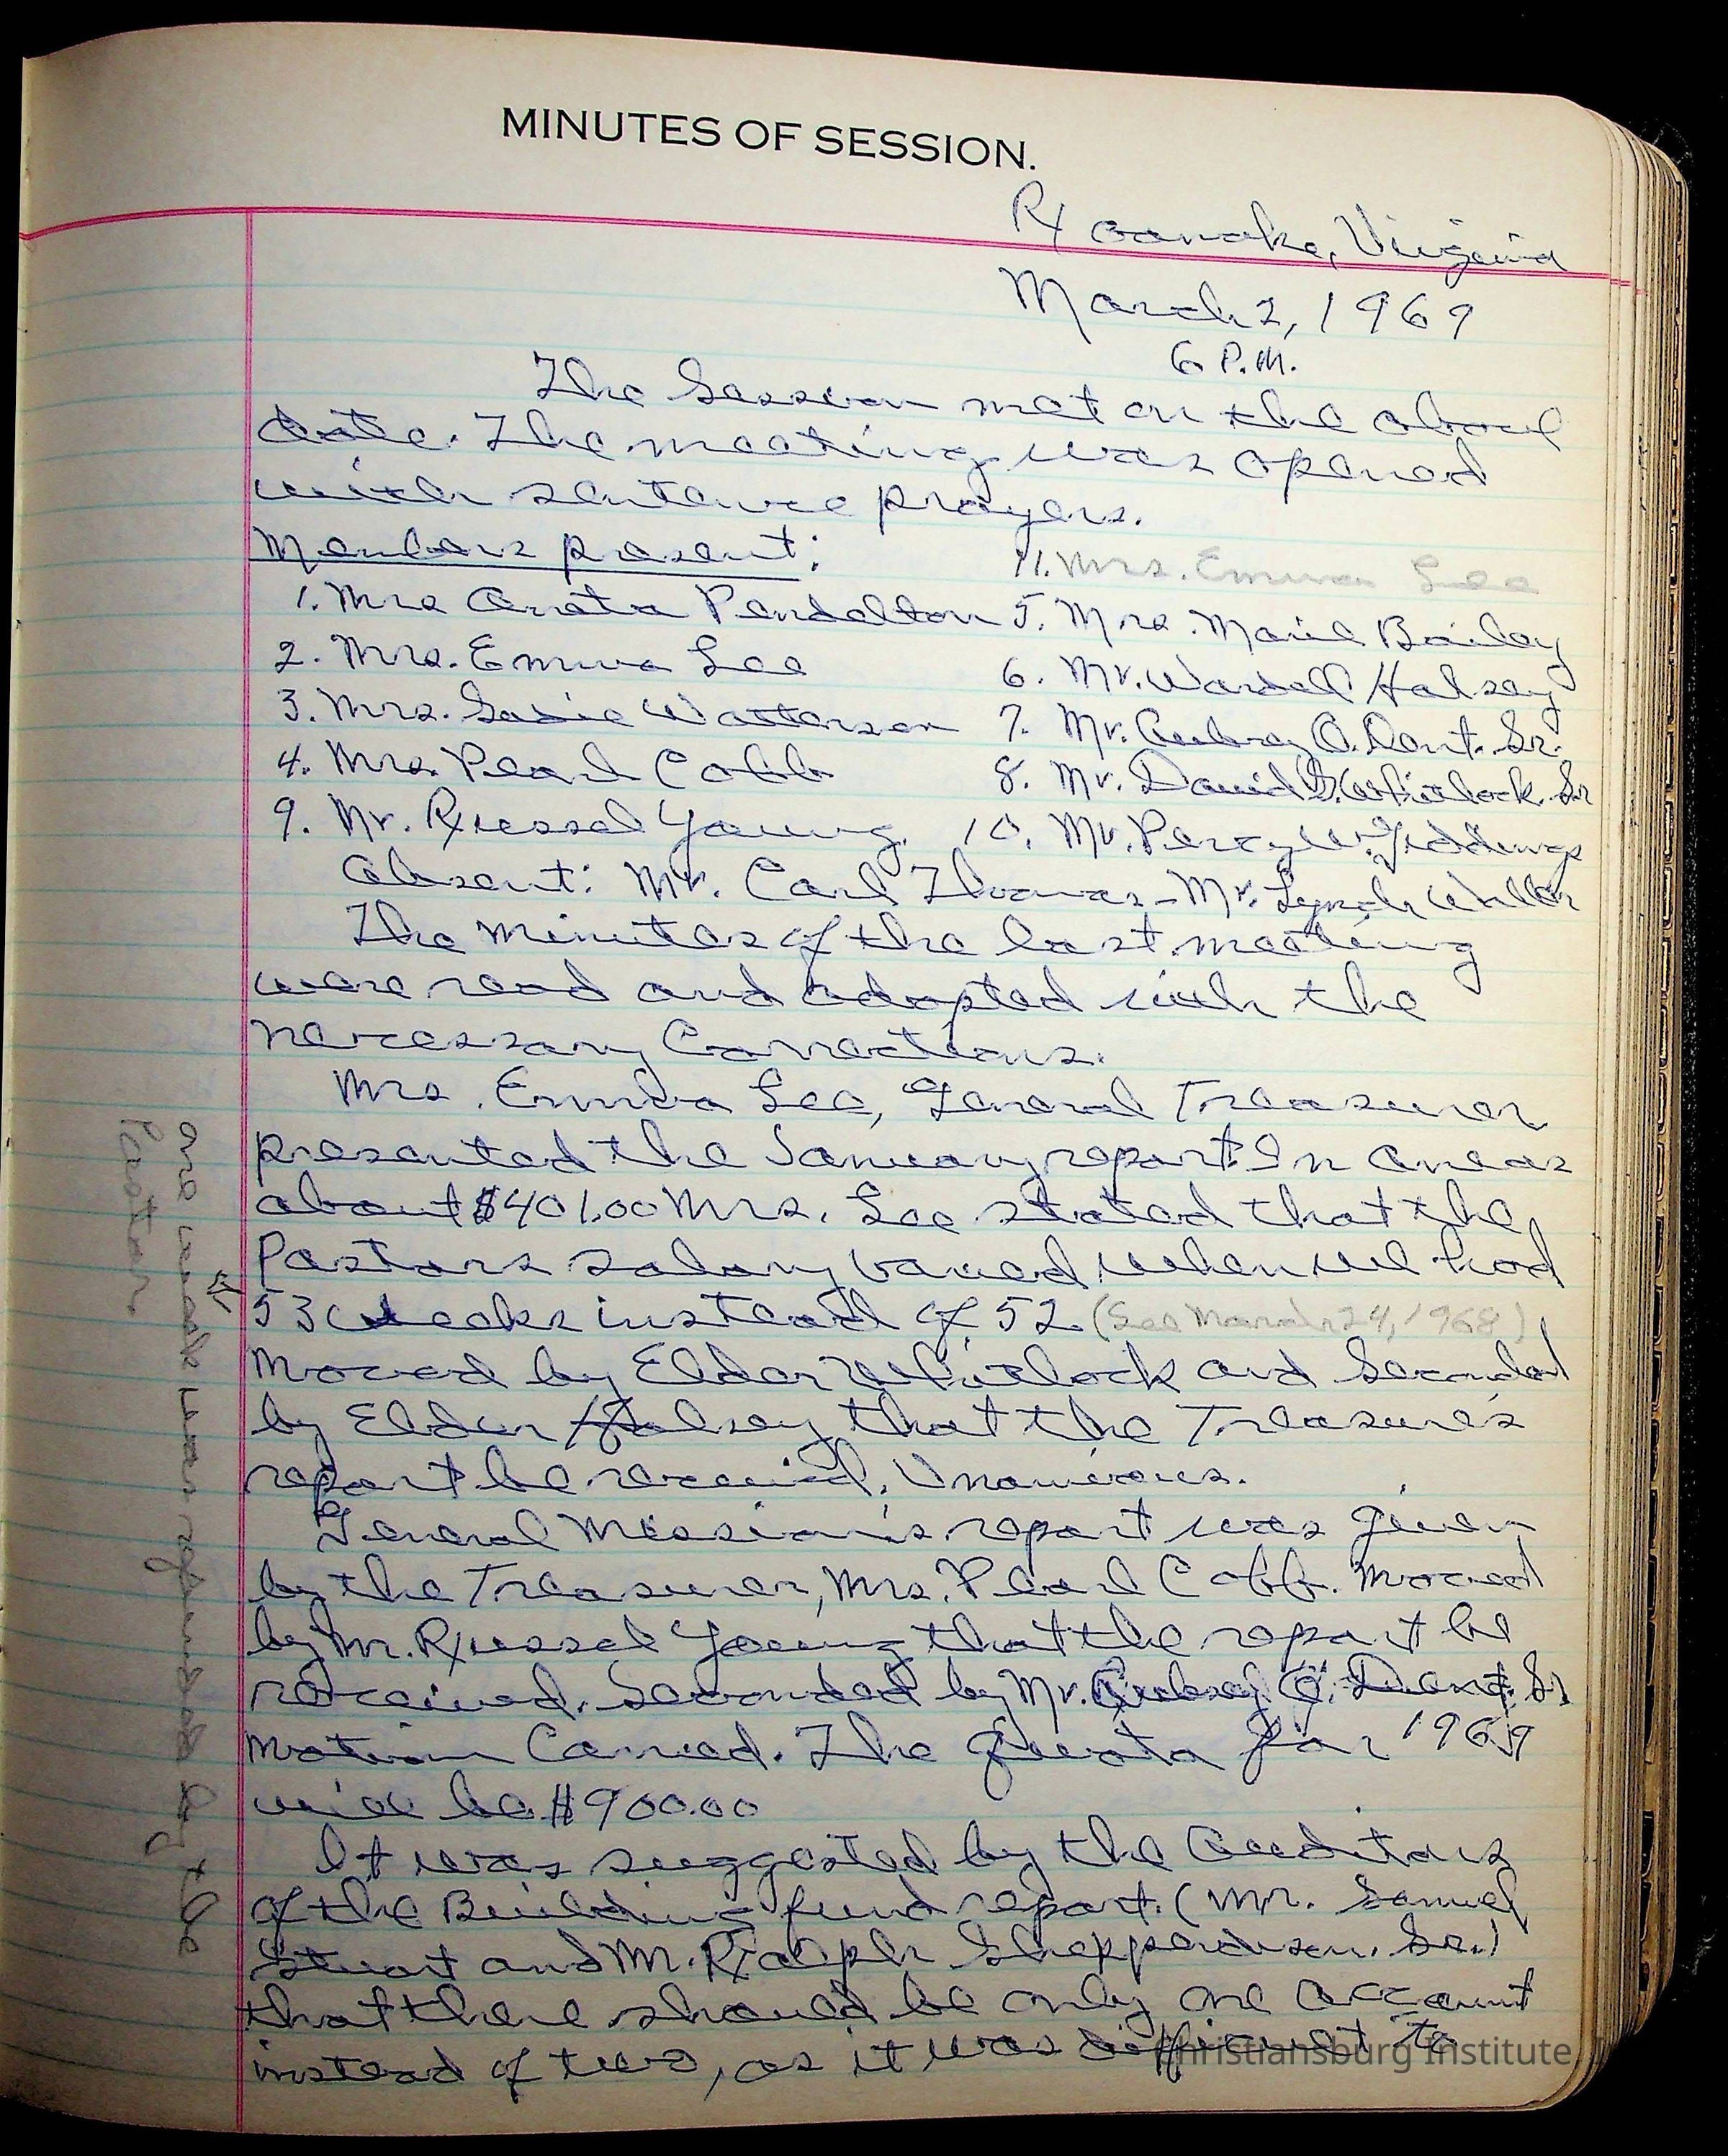 MINUTES OF SESSION.
Roanoke, Virginia
March 2, 1969
6 P.M.
The Session met on the above
date. The meeting was opened
with sentence prayers.
Members present:
11. Mrs. Emma Lee
1. Mrs Aneta Pendelton 5. Mrs. Marie Bailey
2. Mrs. Emma Lee 6. Mr. Wardell Halsey
3. Mrs. Watterson 7. Mr. Aubrey O. Dent. Sr.
4. Mrs. Pearl Cobb 8. Mr. David G. Whitlock. Sr
9. Mr. Russel Young. 10. Mr. Percy W. Giddings
Absent: Mr. Carl Thomas - Mr. Lynch Waller
The minutes of the last meeting
were read and adopted with the
necessary Corrections.
Mrs. Emma Lee, General Treasurer
presented the January report. In arreas
about $401.00 Mrs. Lee stated that the
Pastors salary varied when we had
53 weeks instead of 52 (See March 24, 1968)
Moved by Elder Whitlock and Seconded
by Elder Halsey that the Treasure's
report be received, Unanimous.
General Mission's report was given
by the Treasurer, Mrs. Pearl Cobb. Moved
by Mr. Russel Young that the report be
received. Seconded by Mr. Aubrey O. Dent. Sr
motion Carried. The Quota for 1969
will be $900.00
It was suggested by the Auditors
of the Building fund report. (Mr. Samuel
Stuart and Mr. Ralph Shepperdson. Sr.)
that there should be only one account
instead of two, as it was difficult to
one week was refunded by the
Pastor.
Christiansburg Institute, I